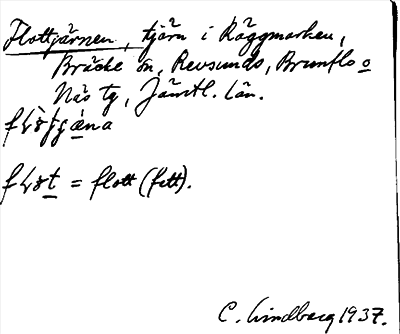 Flottjärnen, tjärn i Räggmarken,
Bräcke sn, Revsunds, Brunflo o
Näs tg, Jämtl. län.
= flott (fett).
C. Lindberg 1937.